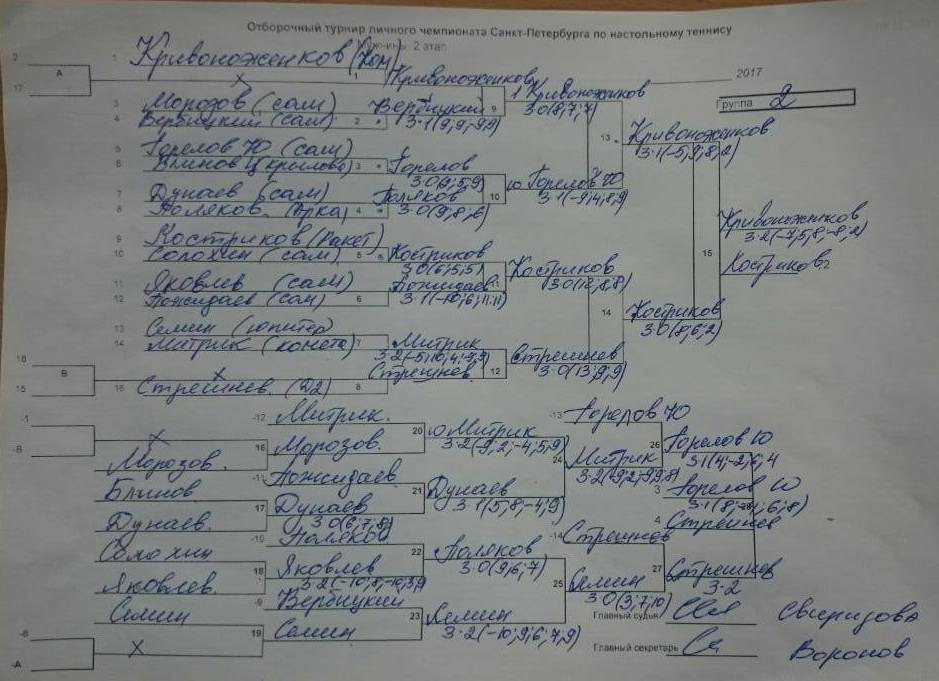 Отборочный турнир личного чемпионата Санкт-Петербурга по настольному теннису
Мужчины 2 этап
2017
Группа 2
2
17
А
1 Кривоноженков (Ком)
3 Морозов (сам)
4 Вербицкий (сам)
5 Горелов Ю (сам)
6 Блинов
7 Дунаев (сам)
8 Поляков
9 Костриков (Ракет)
10 Солохин (сам)
11 Яковлев (сам)
12 Пожидаев (сам)
13 Семин (юпитер)
14 Митрик (комета)
18
15
В
16 Стрешнев (D2)
1 Кривоноженков
2 Вербицкий
3-1(9;9;-9;9)
3 Горелов
3-0(9;5;9)
4 Поляков
3-0(9;8;6)
5 Костриков
3-0(6;5;5)
6 Пожидаев
3-1(-10;6;11;11)
7 Митрик
3-2(-5;10;4;-9;9)
8 Стрешнев
9 Кривоноженков
3-0(8;7;7)
10 Горелов Ю
3-1(-9;4;8;9)
11 Костриков
12 Стрешнев
3-0(13;9;9)
13 Кривоноженков
3-1(-5;9;8;2)
14 Костриков
3-0(8;6;2)
15 Кривоноженков
3-2(-7;5;8;-8;2)
Костриков
-1
-8
16 Морозов
Блинов
17
Дунаев
Солохин
18
Яковлев
Семин
-6
-А
19
-12 Митрик
Морозов
-11 Пожидаев
Дунаев
3-0(6;7;8)
-10 Поляков
Яковлев
3-2(-10;8;-10;3;9)
-9 Вербицкий
Семин
20 Митрик
3-2(-9;2;-4;5;9)
21 Дунаев
3-1(5;8;-4;9)
22 Поляков
3-0(9;6;7)
23 Семин
3-2(-10;9;6;7;9)
-13 Горелов Ю
24 Митрик
-14 Стрешнев
25 Семин
3-0(3;7;10)
26 Горелов Ю
3-1(4;-2;6;4
3 Горелов Ю
28
4 Стрешнев
27 Стрешнев
3-2
Главный судья
Главный секретарь
Воронов